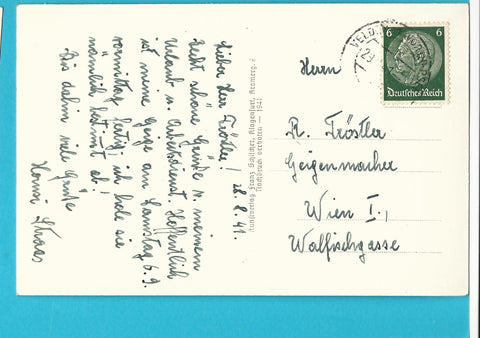 28.8.41.
Lieber Herr Tröstler!
Recht schöne Grüße v. meinem
Urlaub u. Arbeitsdienst. Hoffentlich
ist meine Geige am Samstag 6.9.
vormittag fertig; ich hole sie
nämlich bestimmt ab!
Bis dahin viele Grüße
Hansi
Kunstverlag Franz Schilcher, Klagenfurt,
Nachdruck verboten — 1941
VELD
29
6 6
Deutsches Reich
Herrn
R. Tröstler
Geigenmacher
Wien I.,
Walfischgasse